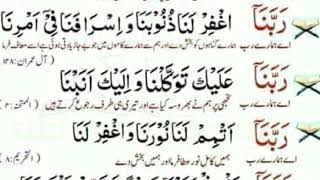 رَبَّنَا اغْفِرْ لَنَا ذُنُوْبَنَا وَاِسْرَافَنَا فِيْٓ اَمْرِنَا
اے ہمارے رب ہمارے گناہوں کو بخش دے اور ہم سے ہمارے کاموں میں جو بے جا زیادتی ہوئی ہے اسے معاف فرما
آل عمران: ۱۴۸
رَبَّنَا عَلَيْكَ تَوَكَّلْنَا وَاِلَيْكَ اَنَبْنَا
اے ہمارے رب تجھی پر ہم نے بھروسہ کیا ہے اور تیری ہی طرف رجوع کرتے ہیں (الممتحنہ: ۴)
رَبَّنَا اَتْمِمْ لَنَا نُوْرَنَا وَاغْفِرْ لَنَا
اے ہمارے رب ہمیں کامل نور عطا فرما اور ہمیں بخش دے (التحریم: ۸)